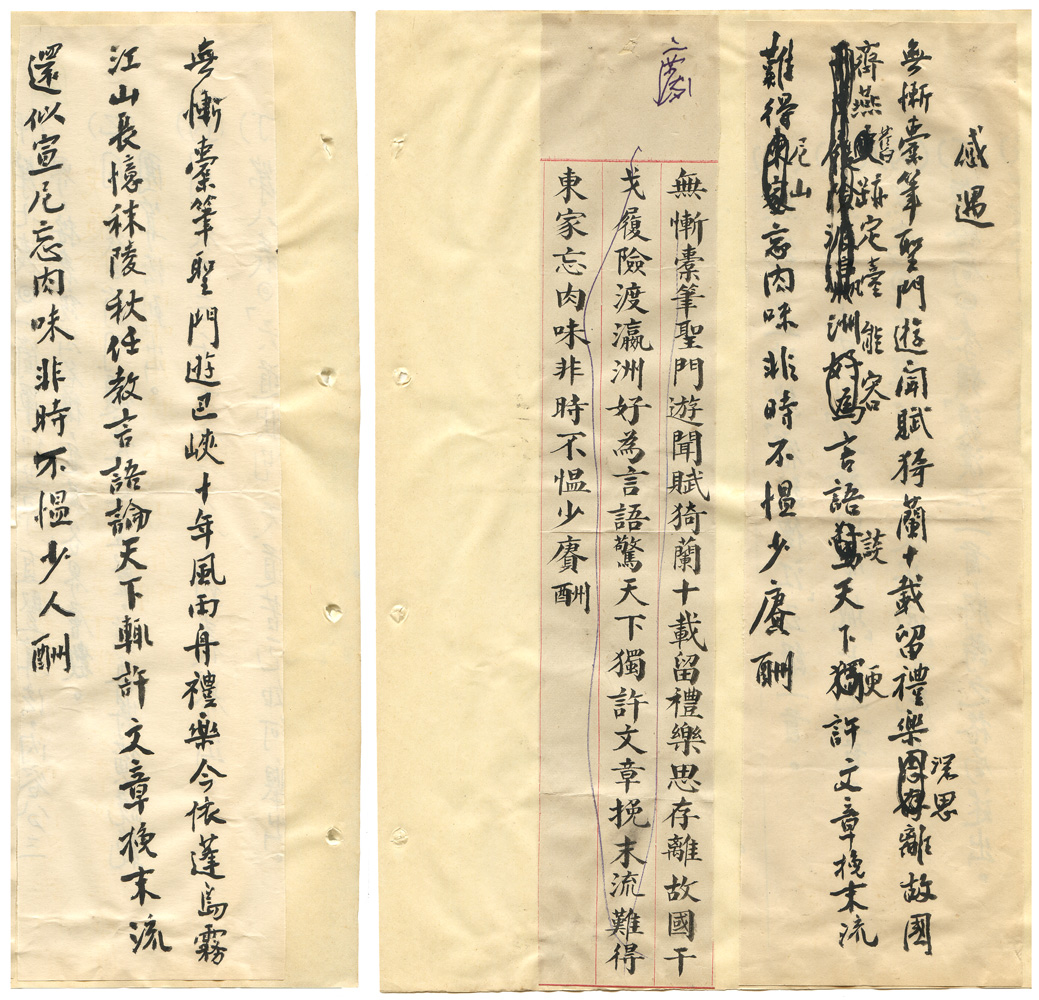 感遇
深思
無慚橐筆聖門遊聞賦猗蘭十載留禮樂思存離故國
齊燕舊蹟定能容談
干戈履險渡瀛洲好為言語驚天下獨許文章挽末流
尼山
難得東家忘肉味非時不慍少賡酬
無慚橐筆聖門遊聞賦猗蘭十載留禮樂思存離故國干
戈履險渡瀛洲好為言語驚天下獨許文章挽末流難得
東家忘肉味非時不慍少賡酬
無慚橐筆聖門遊巴峽十年風雨舟禮樂今依蓬島霧
江山長憶秣陵秋任教言語論天下輒許文章挽末流
還似宣尼忘肉味非時不慍少人酬